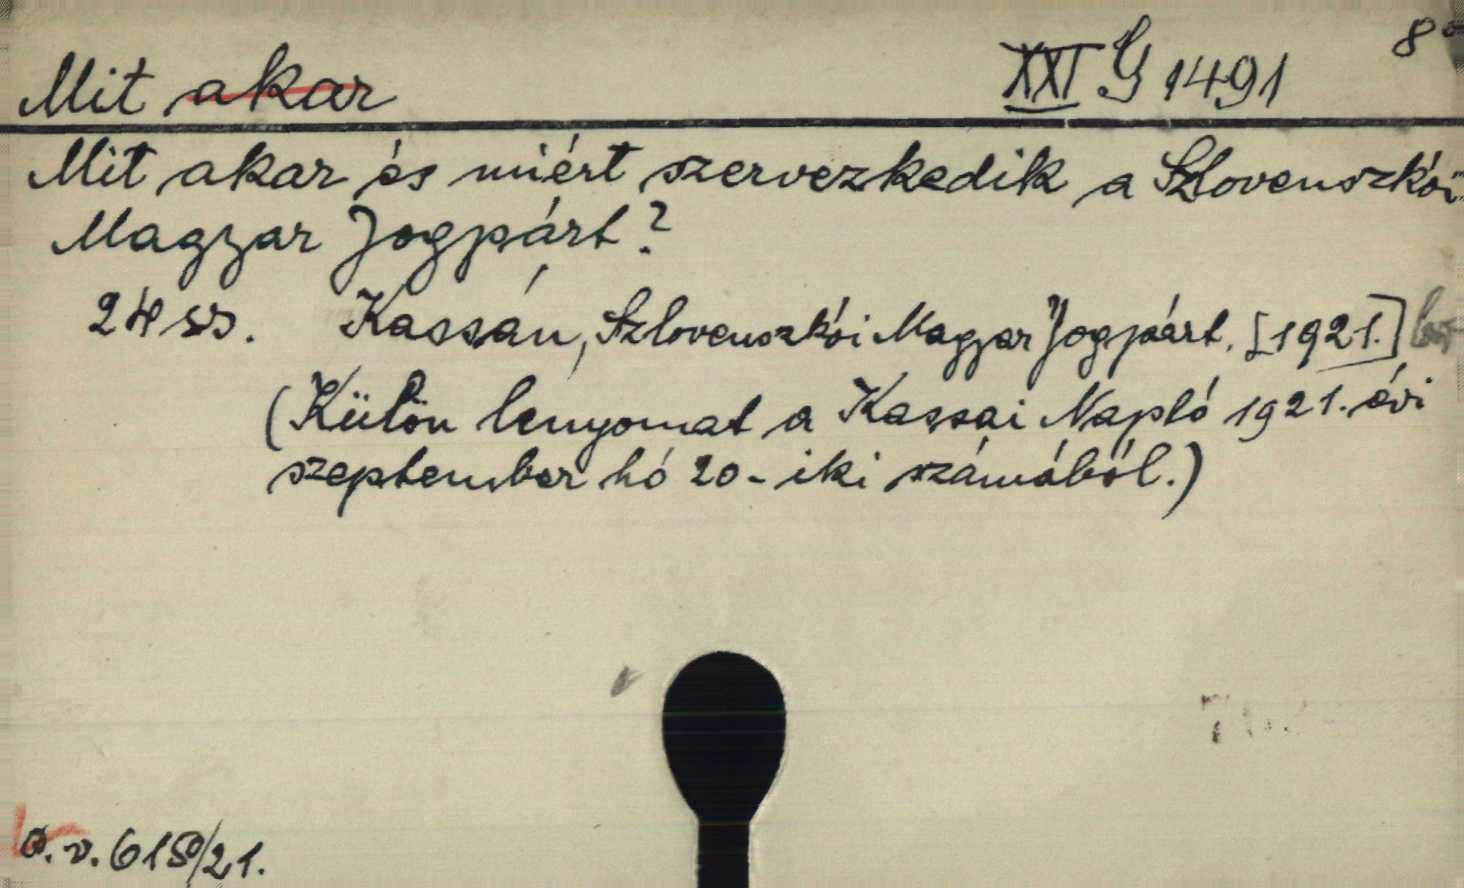 Mit akar XXI G 1491 8°
Mit akar és miért szervezkedik a Szlovenszkói
Magyar Jogpárt?
24 ss. Kassán, Szlovenszkói Magyar Jogpárt. [1921.]
(Külön lenyomat a Kassai Napló 1921. évi
szeptember hó 20-iki számából.)